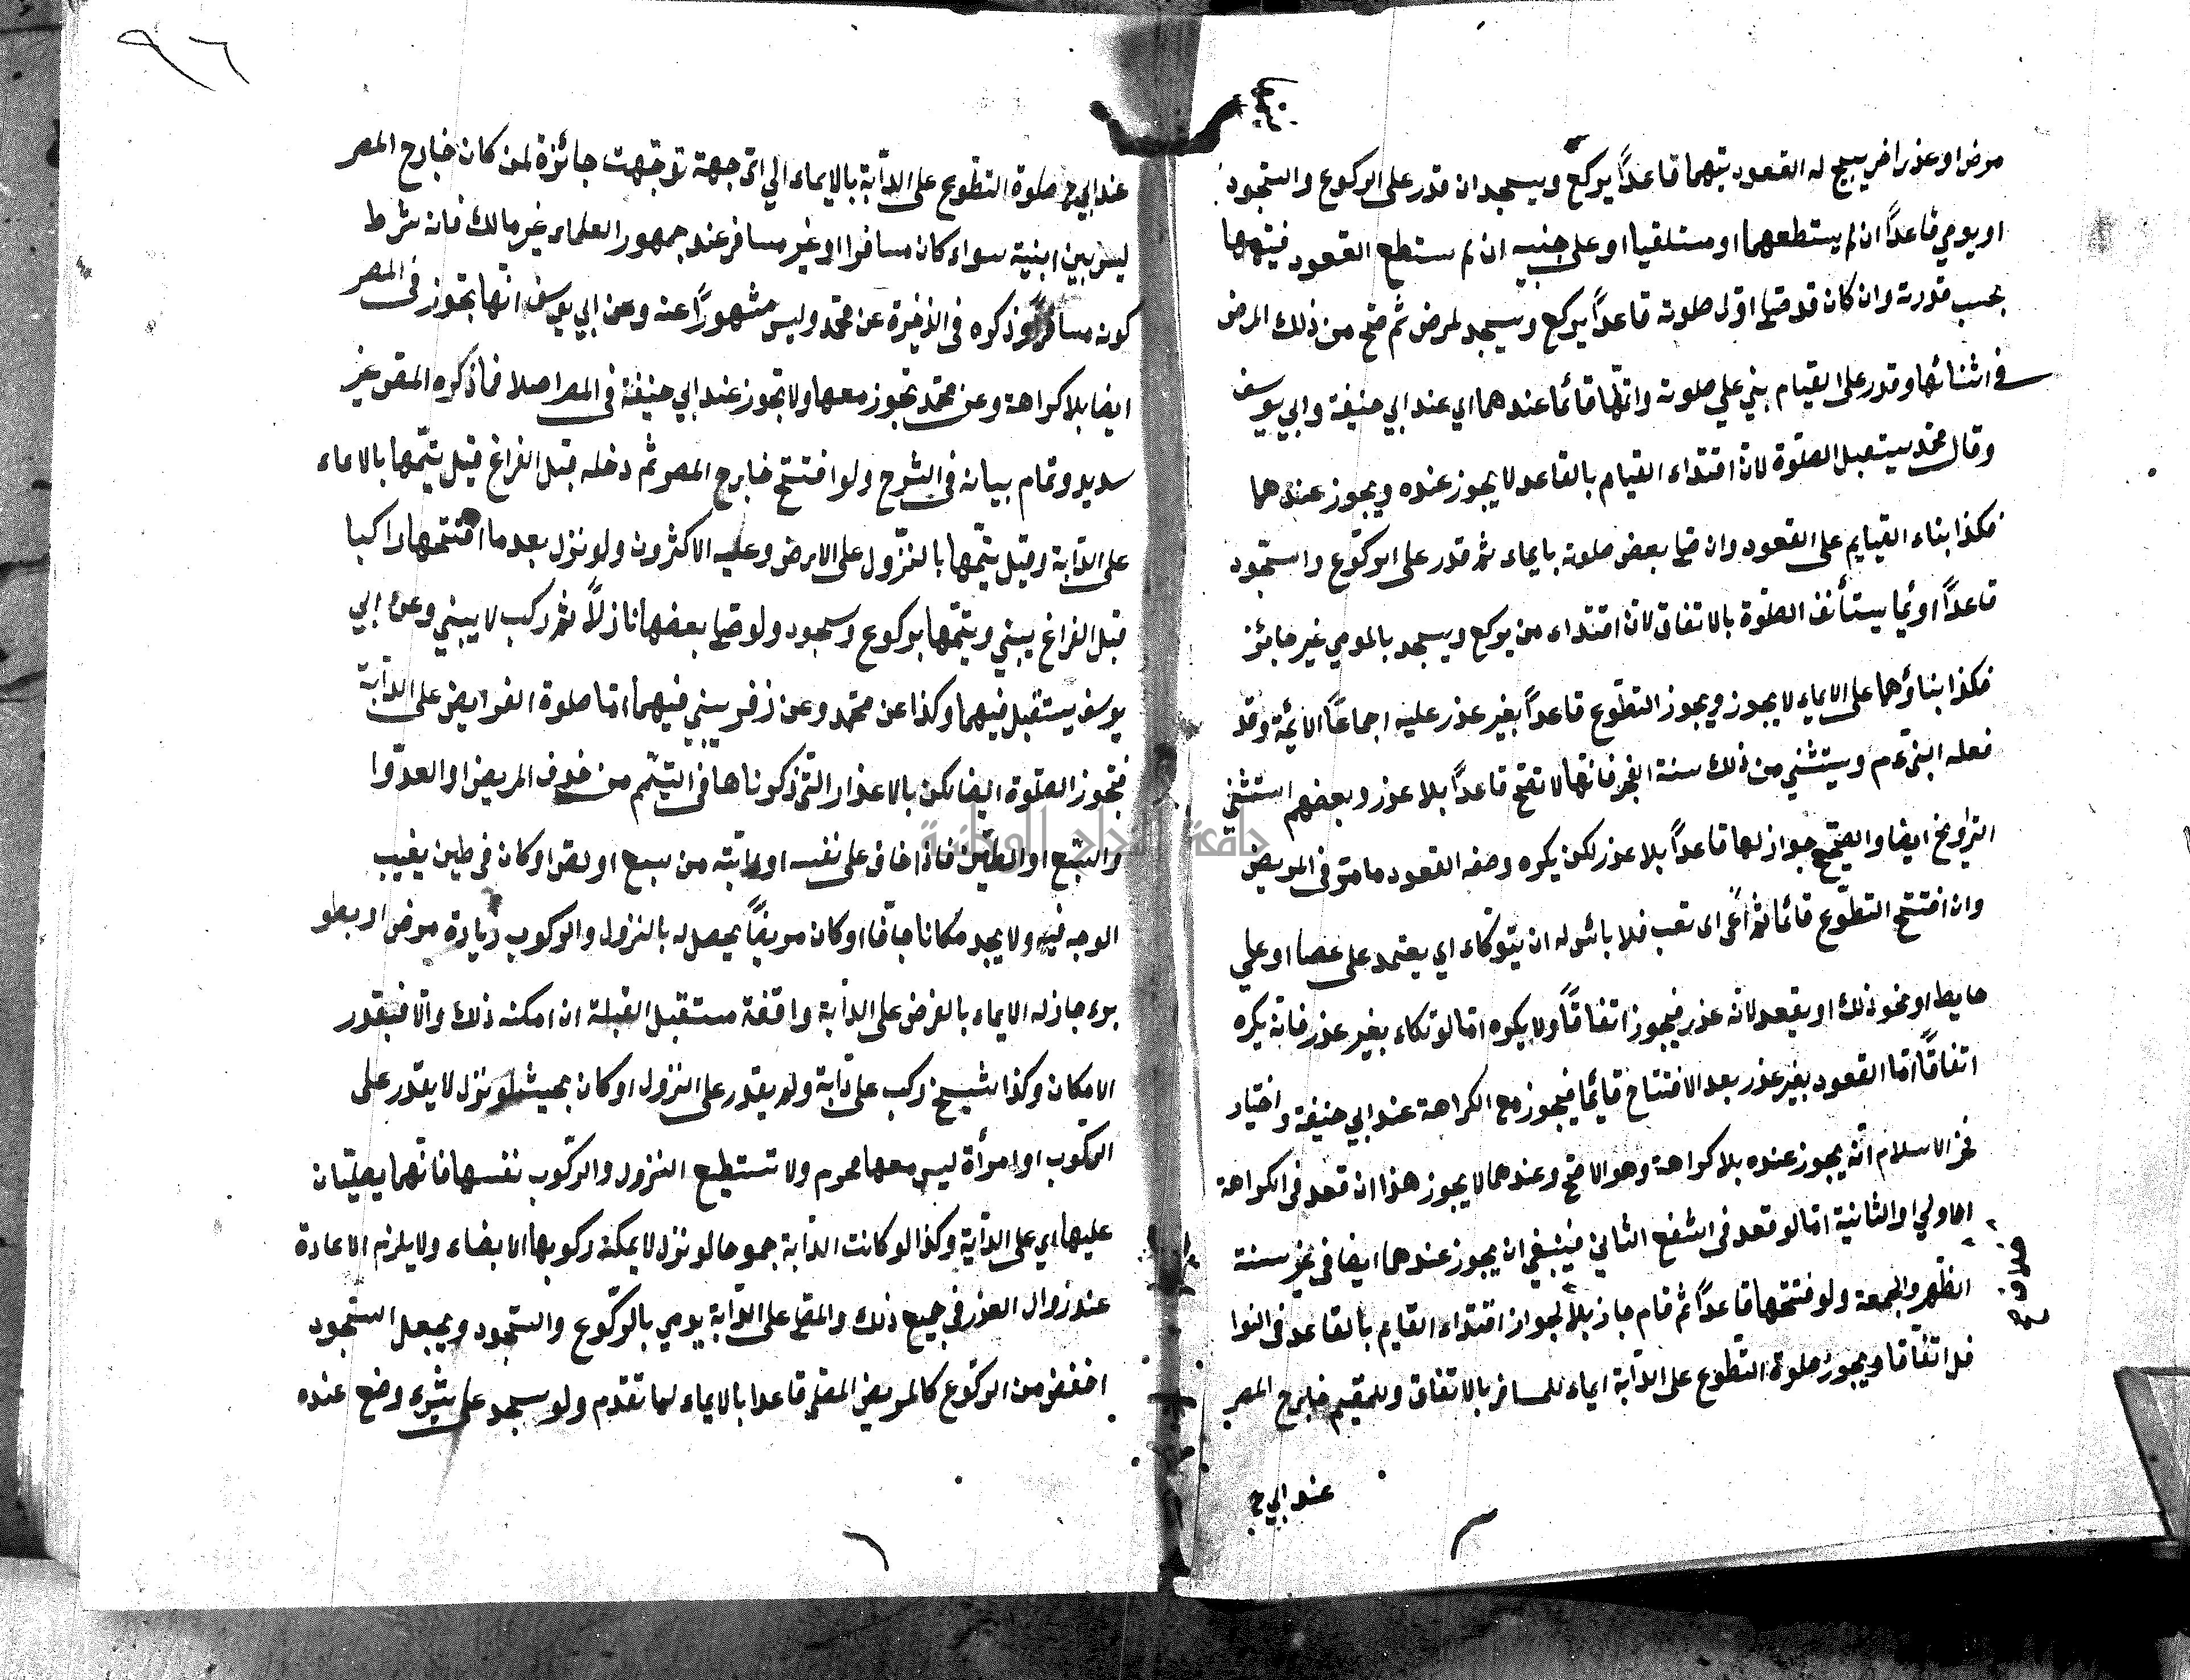 مرض او عذر اخر يبيح له القعود يتمها قاعداً يركع ويسجد ان قدر على الركوع والسجود
او يومي قاعداً ان لم يستطعهما او مستلقيا او على جنبيه ان لم ستطع القعود فيتمها
بحسب قدرته وان كان قد صلى اوّل صلوته قاعداً يركع ويسجد لمرض ثم صح من ذلك المرض
في اثنائها وقدر على القيام بني علي صلوته واتمّها قائما عندهما اي عند ابي حنيفة وابي يوسف
وقال محمّد يستقبل الصلوة لانّ اقتداء القيام بالقاعد لا يجوز عنده ويجوز عندهما
فكذا بناء القيايم على القعود وان صلى بعض صلوته بايماء ثم قدر على الركوع والسجود
قاعداً او ئما يستأنف الصلوة بالاتفاق لانّ اقتداء من يركع ويسجد بالمومي غير جائز
فكذا بناؤهما على الايماء لا يجوز ويجوز التطوّع قاعداً بغير عذر عليه اجماعاً الائمة وقد
فعله النبيّ ءم ويستثني من ذلك سنة الفجر فانّها لا تصح قاعداً بلا عذر وبعضهم استثني
التراويح ايضا والصحيح جواز لها قاعداً بلا عذر لكن يكره وصفه القعود ما مرّ في المريض
وان افتتح التطوّع قائما ثم اعي اى تعب فلا بائس له ان يتوكّاء اي يعتمد على عصا او علي
حايط او نحو ذلك او يقعد لانّه عذر فيجوز اتفاقاً ولا يكره امّا لو تكاء بغير عذر فانه يكره
اتفاقاً امّا القعود بغير عذر بعد الافتتاح قايما فيجوز مع الكراهة عند ابي حنيفة واختيار
فخر الاسلام انّه يجوز عنده بلا كراهة وهو الاصح وعندهما لا يجوز هذا ان قعد في الكراهة
الاولي او الثانية امّا لو قعد في الشفع الثاني فينبغي ان يجوز عندهما ايضا في غير سنة
الظّهر والجمعة ولو فتتحها قاعداً ثم قام جاز بلا لجواز اقتداء القايم بالقاعد في النوا
فل اتفاقا ويجوز صلوة التطوع على الدّابة ايماء للمسافر بالاتفاق وللمقيم خارج المصر
عند ابي ح
٩٦
عند ابي ح صلوة التطوع على الدّابة بالايماء الي ايّ جهة توجّهت جائزة لمن كان خارج المصر
ليس بين ابنية سواء كان مسافرا او غير مسافر عند جمهور العلماء غير مالك فانه شرط
كونه مسافراً وذكره في الذخيرة عن محمّد وليس مشهوراً عنه وعن ابي يوسف انّها تجوز في المصر
ايضا بلا كراهة وعن محمّد تجوز معها ولا تجوز عند ابي حنيفة في المصر اصلا فما ذكره المصّ غير
سديد وتمام بيانه في الشرح ولو افتتح خارج المصر ثم دخله قبل الفراغ قيل يتمّها بالاماء
على الدّابة وقيل يتمّها بالنزول على الارض وعليه الاكثرون ولو نزل بعد ما افتتحها راكبا
قبل الفراغ يبني ويتمّها بركوع وسجود ولو صلى بعضها نازلاً ثم ركب لا يبني وعن ابي
يوسف يستقبل فيهما وكذا عن محمّد وعن زفر يبني فيهما امّا صلوة الفرايض على الدّابة
فتجوز الصلوة ايضا لكن بالاعذار التي ذكرناها في التيمّم من خوف المريض او العدّوا
والسّبع او الطين فاذا خاف على نفسه او دابّته من سبع او لصّ او كان في طين يغيب
الوجه فيه ولا يجد مكانا جافّا او كان مريضاً يحصل له بالنزول والركوب زيادة مرض او بطو
برء جاز له الايماء بالفرض على الدآبة واقفة مستقبل القبلة ان امكنه ذلك والّا فبقدر
الامكان وكذا شيخ ركب على دّابة ولم يقدر على النزول او كان بحيث لو نزل لا يقدر على
الركوب او امرأة ليس معها محرم ولا تستطيع النزول والركوب نفسها فانّهما يصلّيان
عليها اي على الدّابة وكذا لو كانت الدّابة جموحا لو نزل لا يمكنه ركوبها الا بضاء ولا يلزم الاعادة
عند زوال العذر في جميع ذلك والمصلى على الدّابة يومي بالركوع والسجود ويجعل السجود
اخفض من الركوع كالمريض المصلى قاعدا بالايماء لما تقدم ولو سجد على شيء وضع عنده
جامعة النجاح الوطنية